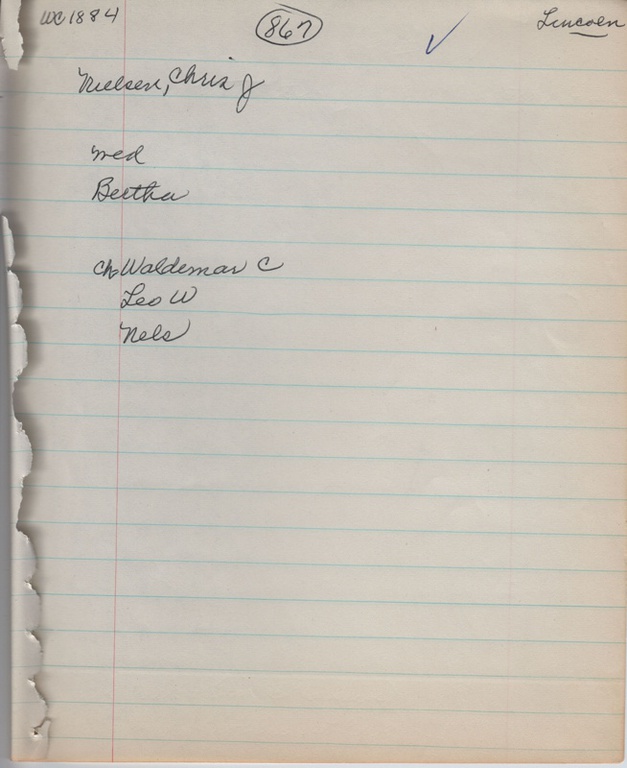 WC 1884
867
Lincoln
Nielsen, Chris J
med
Bertha
ch Waldemar C
Leo W
Nels